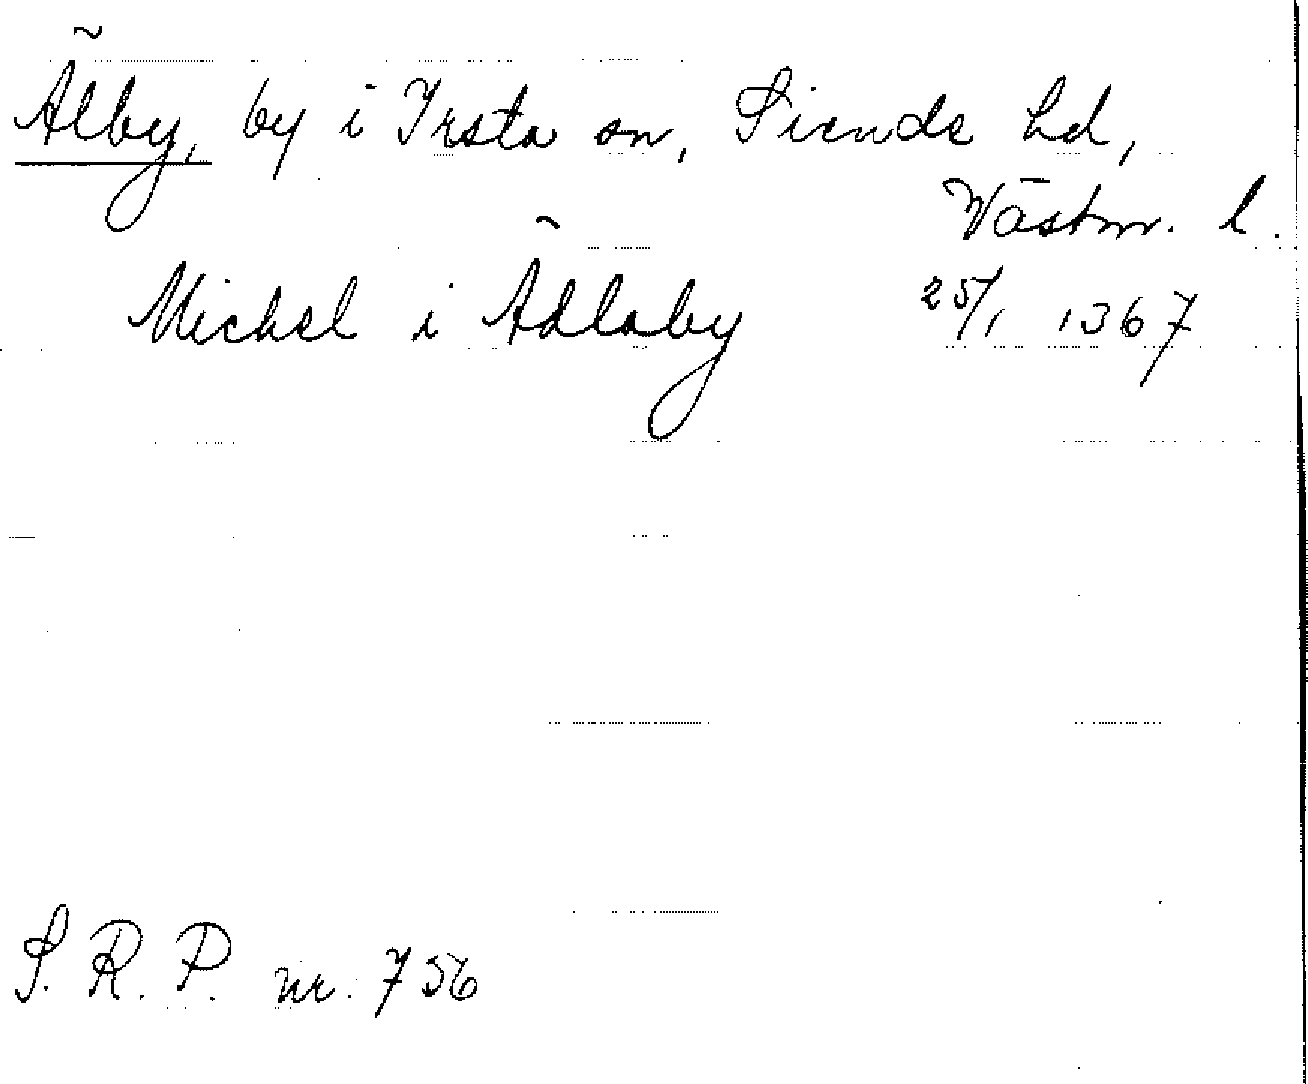 Älby, by i Irsta sn, Siende hd,
Västm. l.
Michel i Ädlaby 25/1 1367
S. R. P. nr. 756